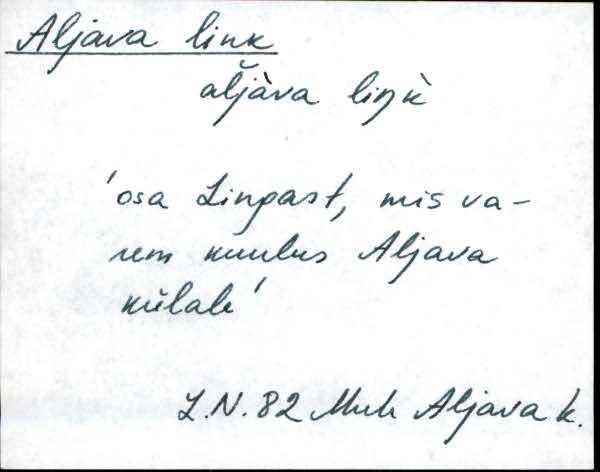 Aljava link
aĺjàva liŋk̀
'osa Lingast, mis va-
rem kuulus Aljava
külale'
L.N. 82 Muh Aljava k.